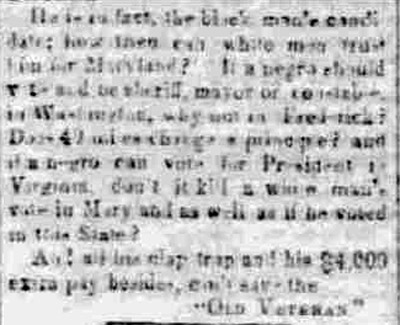 He is in fact, the black man's candi
date; how then can white men trust
him for Maryland? If a negro should
vote and be sheriff, mayor or constable
in Washington, why not in Frederick?
Does 40 miles change a principle? and
if a negro can vote for President in
Virginia, don't it kill a white man's
vote in Maryland as well as if he voted
in this State?
And all his clap trap and his $4,000
extra pay besides, can't save the
"OLD VETERAN"